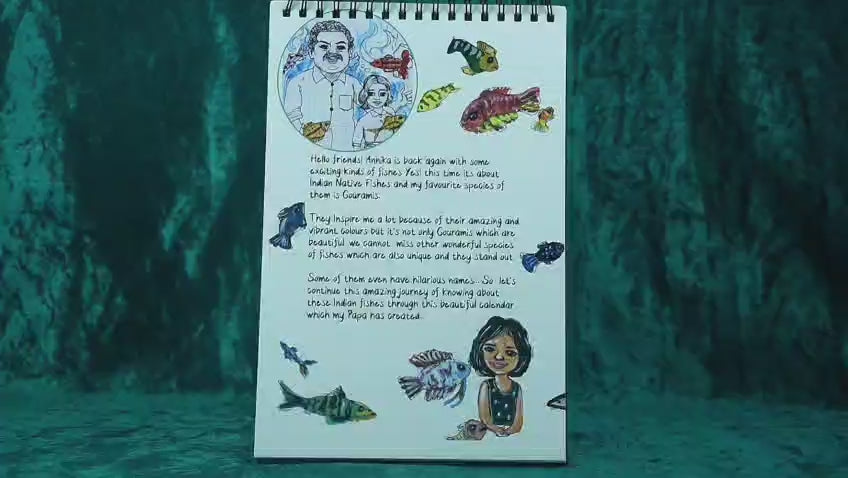 Hello friends! Annika is back again with some
exciting kinds of fishes Yes! this time its about
Indian Native Fishes and my favourite species of
them is Gouramis.
They Inspire me a lot because of their amazing and
vibrant colours but it's not only Gouramis which are
beautiful we cannot miss other wonderful species
of fishes which are also unique and they stand out
Some of them even have hilarious names.. So let's
continue this amazing journey of knowing about
these Indian fishes through this beautiful calendar
which my Papa has created.